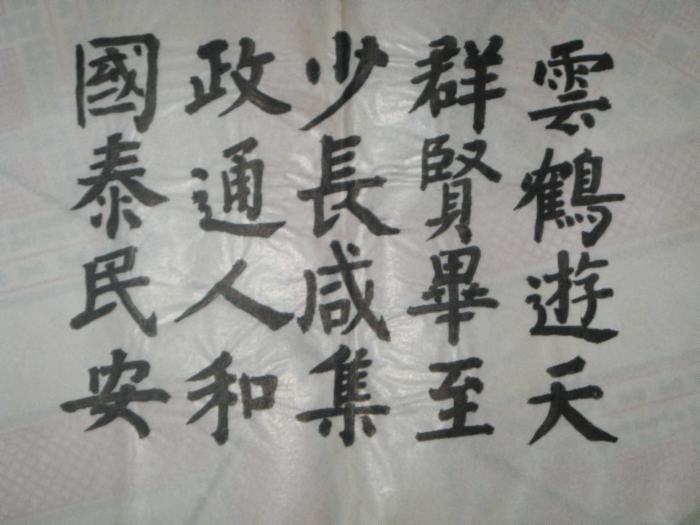 雲鶴遊天
群賢畢至
少長咸集
政通人和
國泰民安